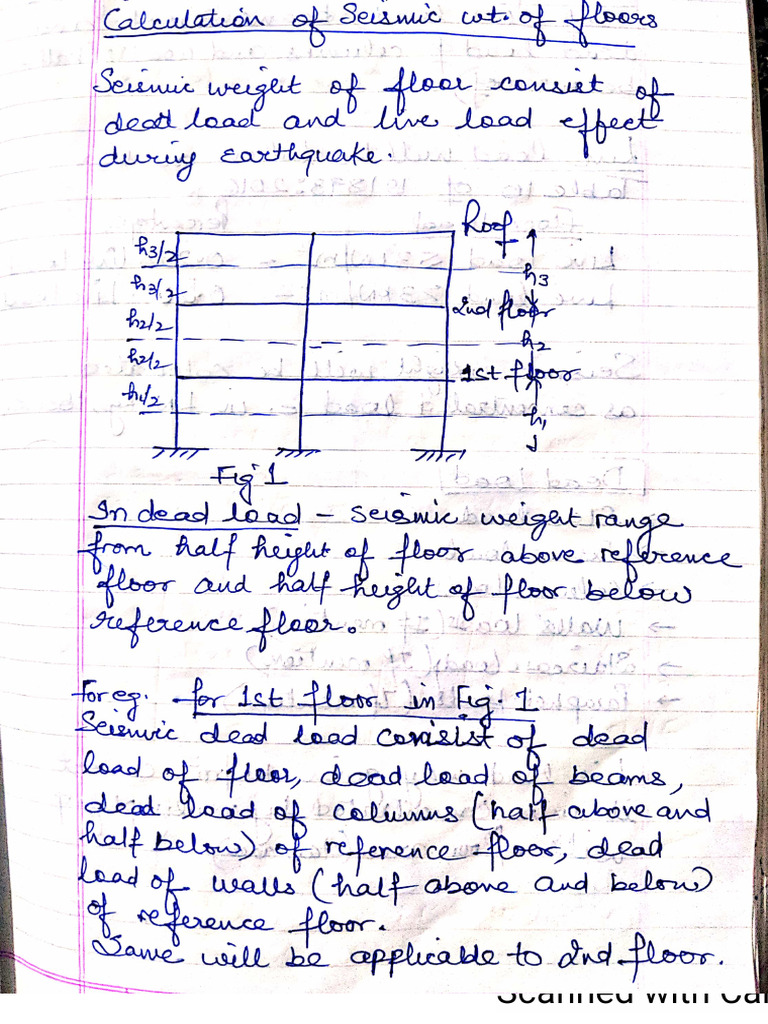 Calculation of Seismic wt. of floors
Seismic weight of floor consist of
dead load and live load effect
during earthquake.
Roof
h3/2
h3
h3/2
2nd floor
h2/2
h2
h2/2
1st floor
h1/2
h1
Fig 1
In dead load - seismic weight range
from half height of floor above reference
floor and half height of floor below
reference floor.
For eg. for 1st floor in Fig. 1
Seismic dead load consist of dead
load of floor, dead load of beams,
dead load of columns (half above and
half below) of reference floor, dead
load of walls (half above and below)
of reference floor.
Same will be applicable to 2nd floor.
Scanned with Ca